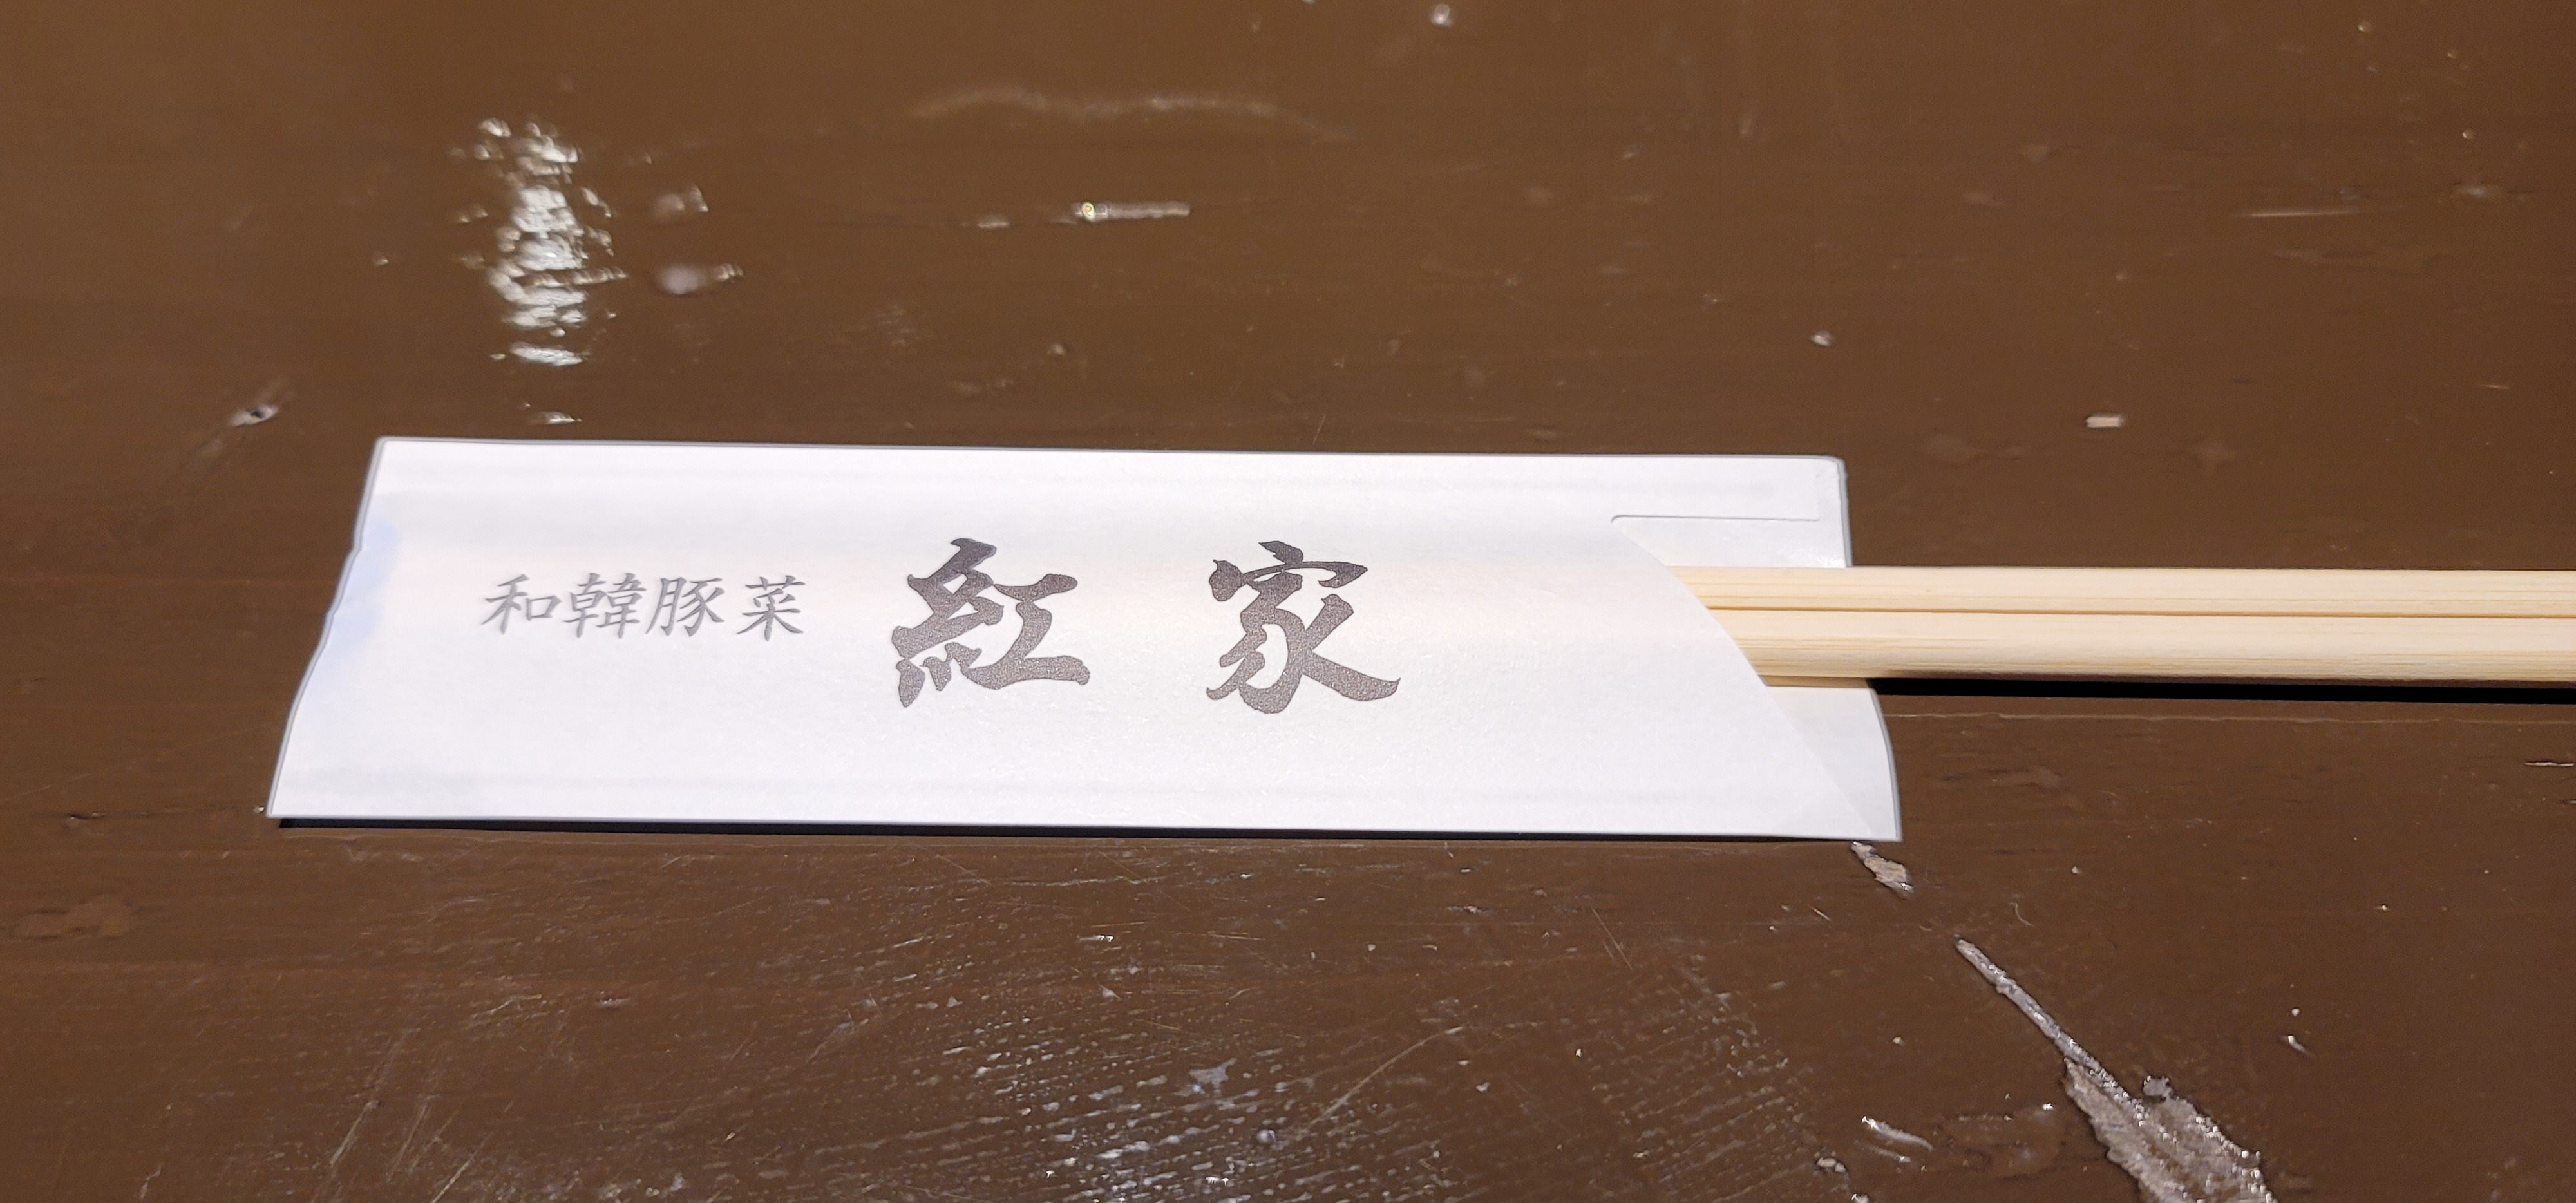 和韓豚菜 紅家